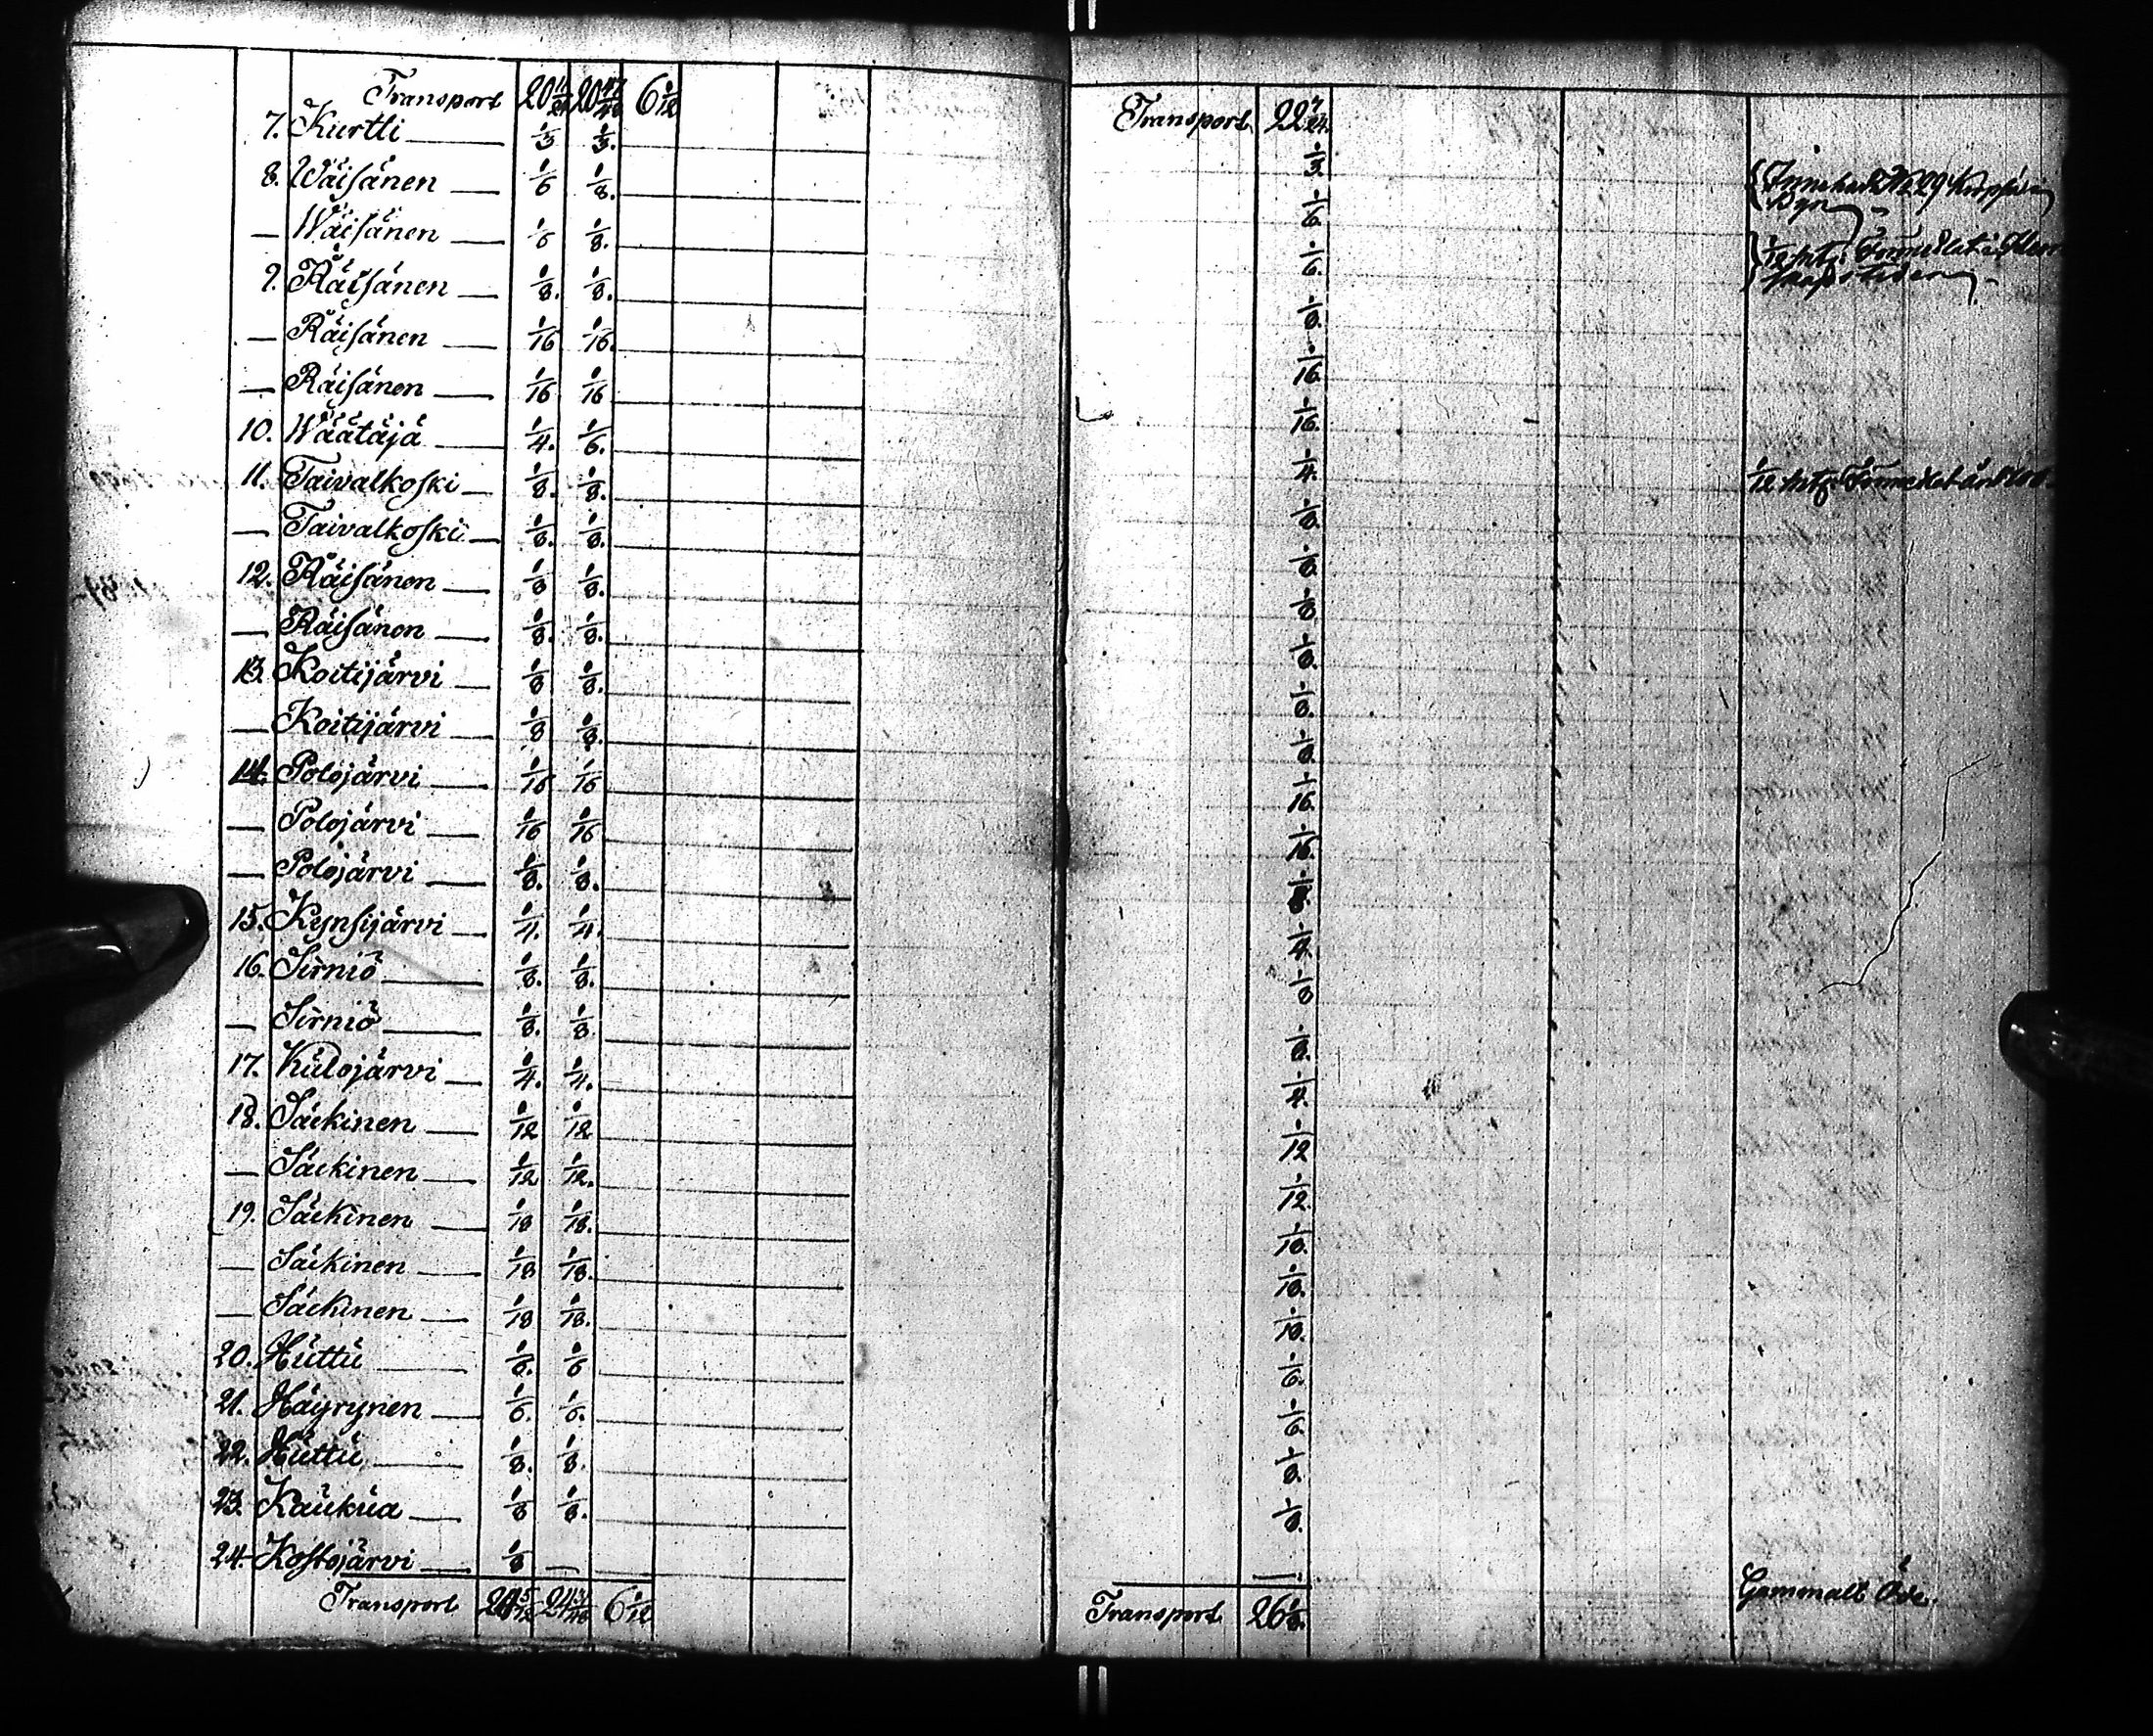 Transport 20 20 6 1/12
7. Kurtti 1/3 1/3.
8. Wäisänen 1/6 1/8.
— Wäisänen 1/6 1/8.
9. Räisänen 1/8. 1/8.
— Räisänen 1/16 1/16.
— Räisänen 1/16 1/16
10. Wäätäjä 1/4. 1/6.
11. Taivalkoski 1/8. 1/8.
— Taivalkoski 1/8. 1/8.
12. Räisänen 1/8 1/8.
— Räisänen 1/8. 1/8.
13. Koitijärvi 1/8 1/8.
— Koitijärvi 1/8 1/8.
14. Polojärvi 1/16 1/16
— Polojärvi 1/16 1/16
— Polojärvi 1/8. 1/8.
15. Kynsijärvi 1/4. 1/4.
16. Sirniö 1/8. 1/8.
— Sirniö 1/8. 1/8
17. Kulojärvi 1/4. 1/4.
18. Säckinen 1/12 1/12
— Säckinen 1/12 1/12.
19. Säckinen 1/18 1/18.
— Säckinen 1/18 1/18.
— Säckinen 1/18 1/18.
20. Huttu 1/6. 1/6
21. Häyrynen 1/6. 1/6.
22. Huttu 1/8. 1/8.
23. Kaukua 1/8 1/8.
24. Kostojärvi 1/8 —
Transport 24 24 6 1/12
Transport 22 7/24.
1/3.
1/6.
1/6.
1/8.
1/16.
1/16.
1/4.
1/8.
1/8.
1/8.
1/8.
1/8.
1/8.
1/16.
1/16.
1/8.
1/4.
1/8
1/8.
1/4.
1/12
1/12.
1/18.
1/18.
1/18.
1/6.
1/6.
1/8.
1/8.
—
Transport 26 1/8.
No 29
Byn
1/12 mtl.
1/12 mtl.
Gammalt Öde.